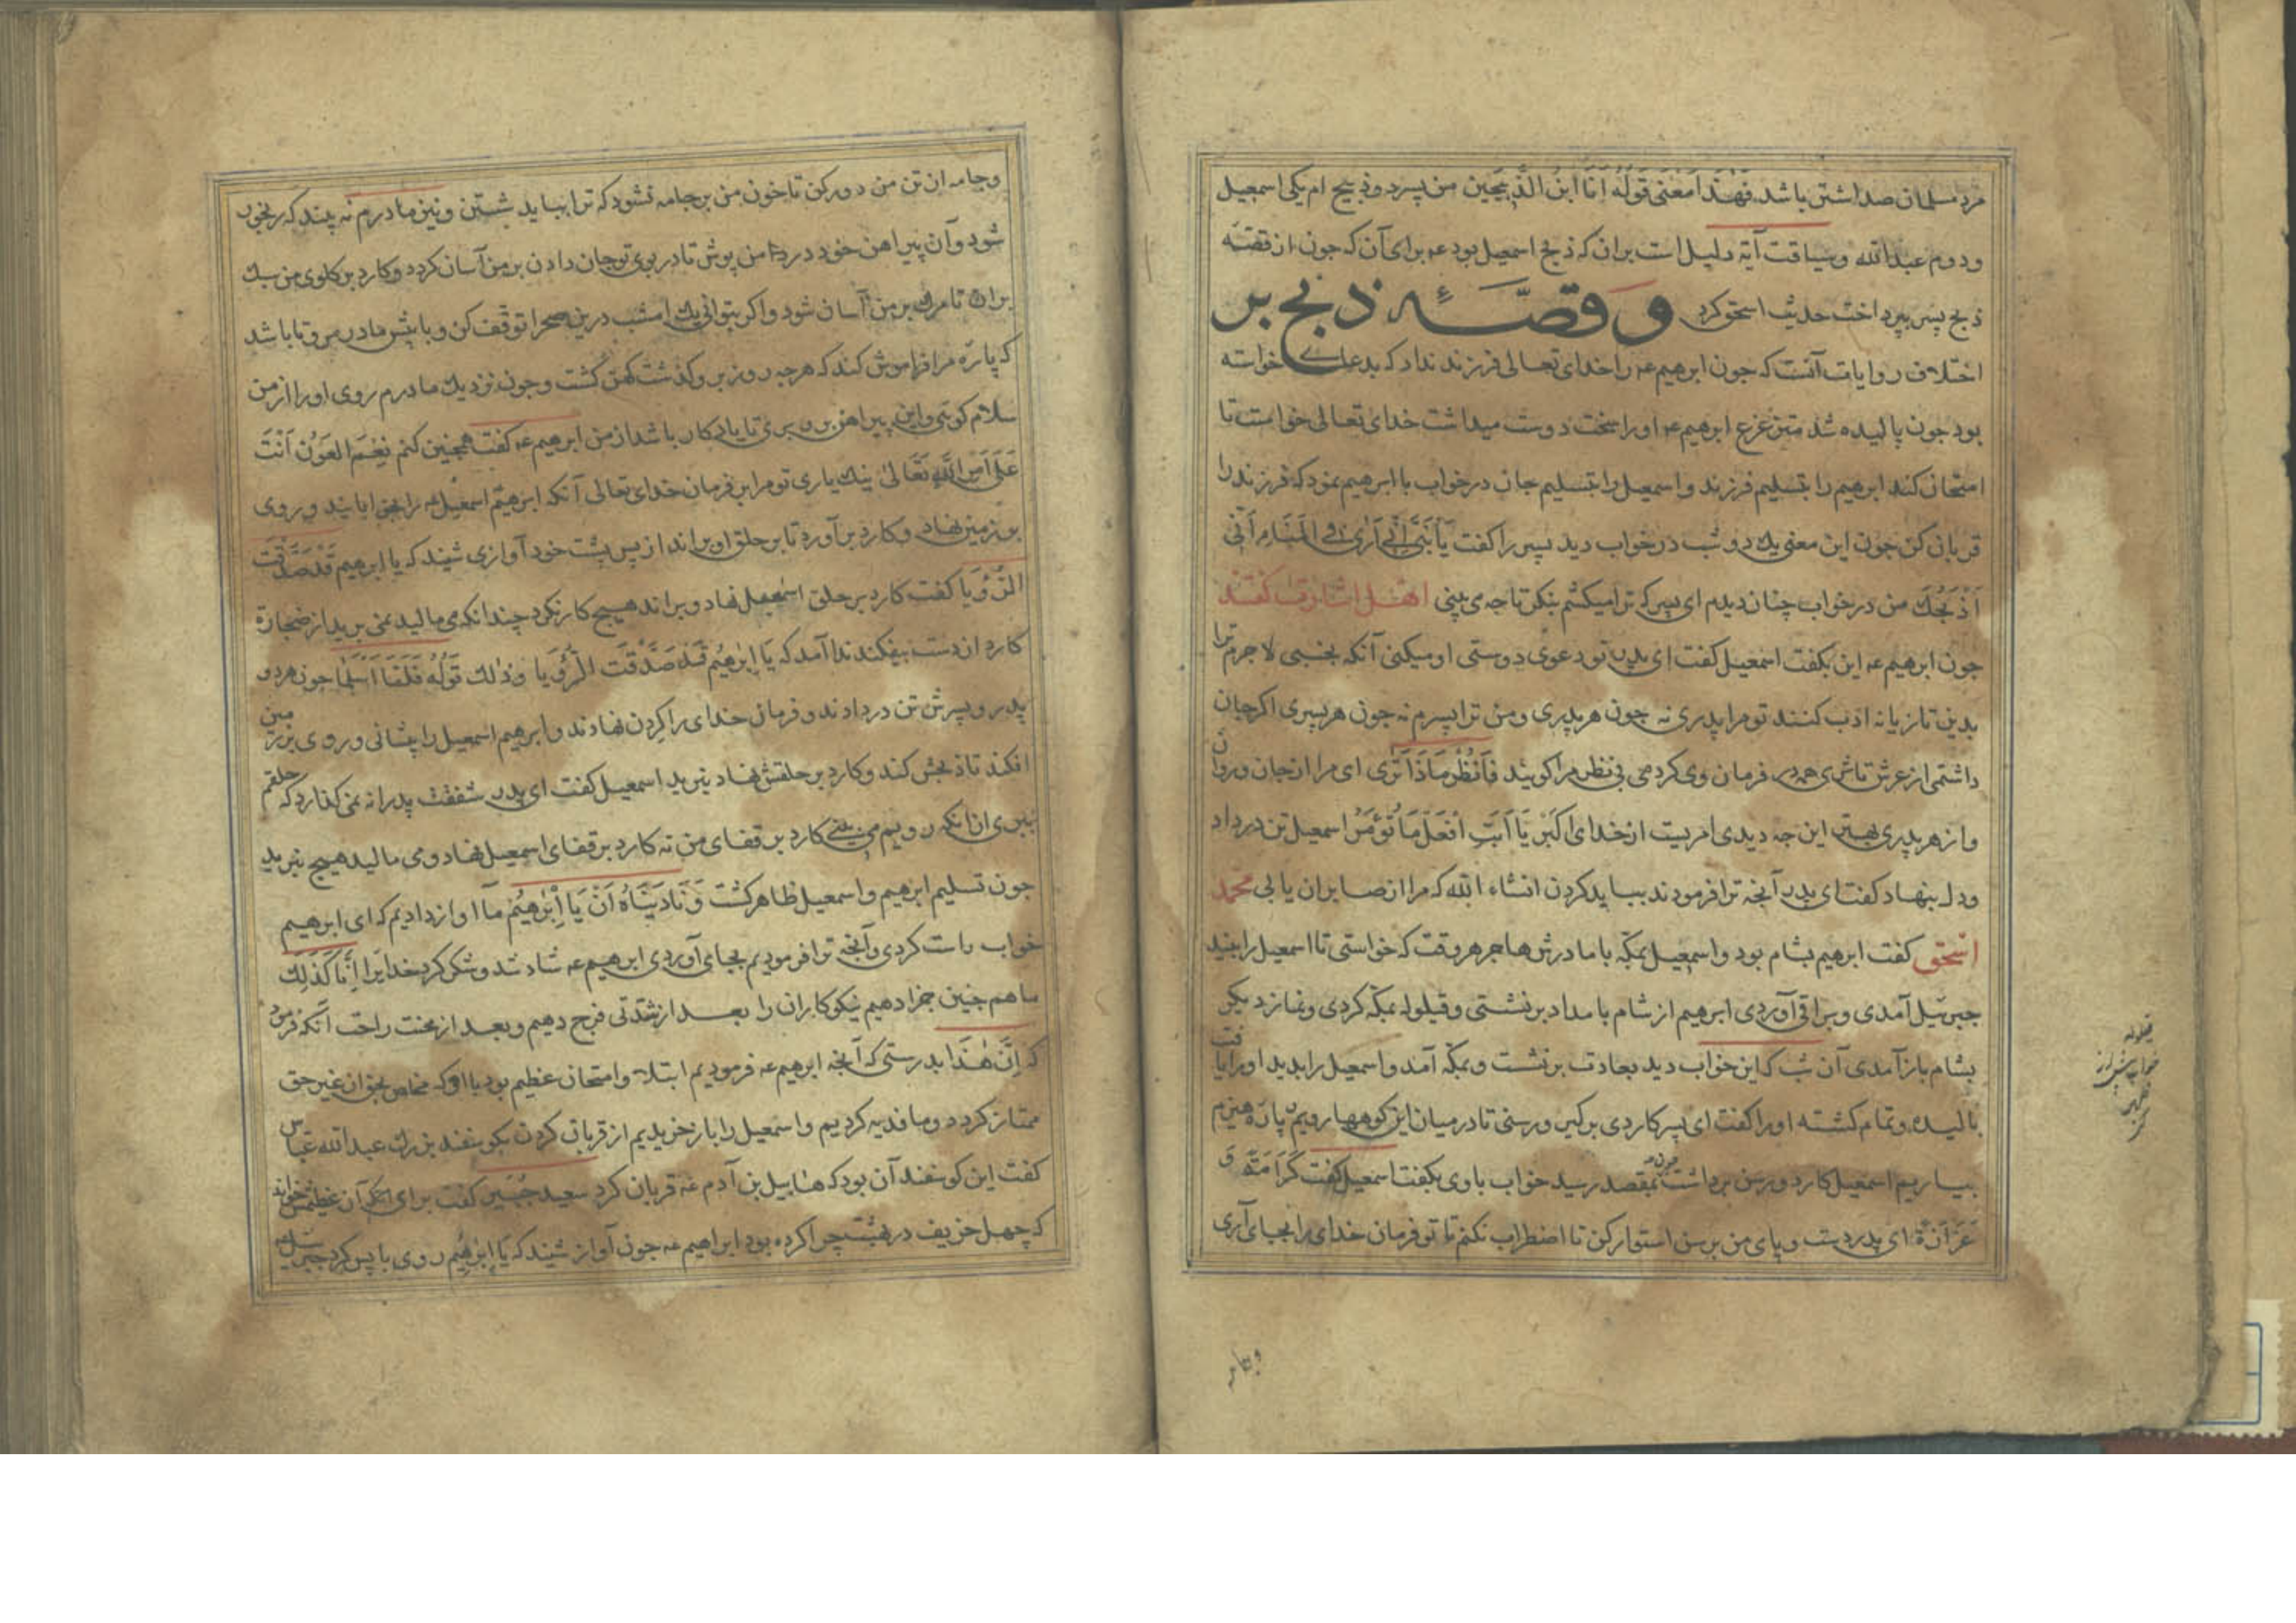 مرد مسلمان صد اشتر باشد فَهَذَا مَعْنَى قَوْلُهُ اَنَا ابْنُ الذَّبِيحَيْنِ من پسر دو ذبیح ام یکی اسمعیل
ودوم عبدالله وسیاقت آیة دلیل است بران که ذبیح اسمعیل بود عم برای آن که جون از قصّه
ذبح پسر بپرداخت حدیث اسحق کرد وقصّۀ ذبح بر
اختلاف روایات آنست که جون ابرهیم عم را خدای تعالی فرزند نداد که بدعا خواسته
بود جون بالیده شد مترعرع ابرهیم عم او را سخت دوست میداشت خدای تعالی خواست تا
امتحان کند ابرهیم را بتسلیم فرزند واسمعیل را بتسلیم جان درخواب با ابرهیم نمود که فرزند را
قربان کن جون این معنی یک دو شب درخواب دید پسر را کفت يَا بُنَيَّ اِنِّي اَرَى فِي الْمَنَامِ اَنِّي
اَذْبَحُكَ من درخواب چنان دیدم ای پسر که ترا میکشم بنکر تا چه می بینی اهل اشارت کفتند
جون ابرهیم عم این بکفت اسمعیل کفت ای پدر تو دعوی دوستی او میکنی آنکه بخسبی لاجرم ترا
بدین تازیانه ادب کنند تو مرا پدری نه جون هر پدری ومن ترا پسرم نه جون هر پسری اکرجان
داشتمی از عرش تا ثری همه در فرمان وی کردمی بی نظر مرا کویند فَانْظُرْ مَاذَا تَرَى ای مرا از جان وروان
واز هر پدری بهتر این چه دیدی امریست از خدای اکبر يَا اَبَتِ افْعَلْ مَا تُؤْمَرُ اسمعیل تن درداد
ودل بنهاد کفت ای پدر آنچه ترا فرمودند بباید کردن انشاء الله که مرا از صابران یابی محمد
اسحق کفت ابرهیم بشام بود واسمعیل بمکّه با مادرش هاجر هروقت که خواستی تا اسمعیل را بیند
جبرئیل آمدی وبراق آوردی ابرهیم از شام بامداد برنشستی وقیلوله بمکّه کردی ونماز دیکر
بشام باز آمدی آن شب که این خواب دید بعادت برنشست وبمکّه آمد واسمعیل را بدید او را یافت
بالیده وتمام کشته او را کفت ای پسر کاردی برکیر ورسنی تا درمیان این کوهها رویم پاره هیزم
بیاریم اسمعیل کارد ورسن برداشت جون بمقصد رسید خواب باوی بکفت اسمعیل کفت كَرَامَةً وَ
عَزَازَةً ای پدر دست وپای من برسن استوار کن تا اضطراب نکنم تا تو فرمان خدای را بجای آری
وجامه
قیلوله
وجامه از تن من دورکن تا خون من برجامه نشود که ترا بباید شستن ونیز مادرم نه بیند که رنجور
شود وآن پیراهن خود در من پوش تا در بوی تو جان دادن بر من آسان کردد وکارد برکلوی من سبک
بران تا مرک بر من آسان شود واکر بتوانی یک امشب درین صحرا توقّف کن وبا پیش مادر مرو تا باشد
که پارۀ مرا فراموش کند که هرجه روز برو کذشت کهن کشت وجون نزدیک مادرم روی او را از من
سلام کوی واین پیراهن برو بری تا یادکار باشد از من ابرهیم عم کفت همچنین کنم نِعْمَ الْعَوْنُ اَنْتَ
عَلَى اَمْرِ اللهِ تَعَالَى نیک یاری تو مرا بر فرمان خدای تعالی آنکه ابرهیم اسمعیل را بخوابانید وروی
برزمین نهاد وکارد برآورد تا بر حلق او براند از پس پشت خود آوازی شنید که یا ابرهیم قَدْ صَدَّقْتَ
الرُّؤْيَا کفت کارد بر حلق اسمعیل نهاد وبراند هیچ کار نکرد چندانکه می مالید نمی برید از ضجارة
کارد از دست بیفکند ندا آمد که يَا اِبْرَاهِيمُ قَدْ صَدَّقْتَ الرُّؤْيَا وذلك قَوْلُهُ فَلَمَّا اَسْلَمَا جون هردو
پدر وپسرش تن دردادند وفرمان خدای را کردن نهادند وابرهیم اسمعیل را پیشانی وروی برزمین
افکند تا ذبحش کند وکارد بر حلقش نهاد نبرید اسمعیل کفت ای پدر شفقت پدرانه نمی کذارد که حلقم
ببری از آنکه رویم می بینی کارد بر قفای من نه کارد بر قفای اسمعیل نهاد ومی مالید هیچ نبرید
جون تسلیم ابرهیم واسمعیل ظاهر کشت وَنَادَيْنَاهُ اَنْ يَا اِبْرَاهِيمُ ما آواز دادیم که ای ابرهیم
خواب راست کردی وآنچه ترا فرمودیم بجای آوردی ابرهیم عم شاد شد وشکر کرد خدایرا اِنَّا كَذَلِكَ
ما هم چنین جزا دهیم نیکوکاران را بعد از شدّتی فرح دهیم وبعد از محنت راحت آنکه فرمود
که اِنَّ هٰذَا بدرستی که آنچه ابرهیم عم فرمودیم ابتلا وامتحان عظیم بود
ممتاز کردد وما فدیه کردیم واسمعیل را باز خریدیم از قربان کردن بکوسفند بزرک عبدالله عبّاس
کفت این کوسفند آن بود که هابیل بن آدم عم قربان کرد سعید جُبَیر کفت برای آنکه آن عظیمش خواند
که چهل خریف در بهشت چرا کرده بود ابراهیم عم جون آواز شنید که يَا اِبْرَاهِيمُ روی باپس کرد جبرئیل